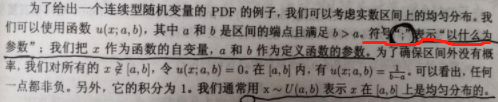 为了给出一个连续型随机变量的 PDF 的例子，我们可以考虑实数区间上的均匀分布。我
们可以使用函数 u(x; a, b)，其中 a 和 b 是区间的端点且满足 b > a。符 表示“以什么为
参数”；我们把 x 作为函数的自变量，a 和 b 作为定义函数的参数。为了确保区间外没有概
率，我们对所有的 x ∉ [a, b]，令 u(x; a, b) = 0。在 [a, b] 内，有 u(x; a, b) = 1/(b−a)。可以看出，任何
一点都非负。另外，它的积分为 1。我们通常用 x ~ U(a, b) 表示 x 在 [a, b] 上是均匀分布的。